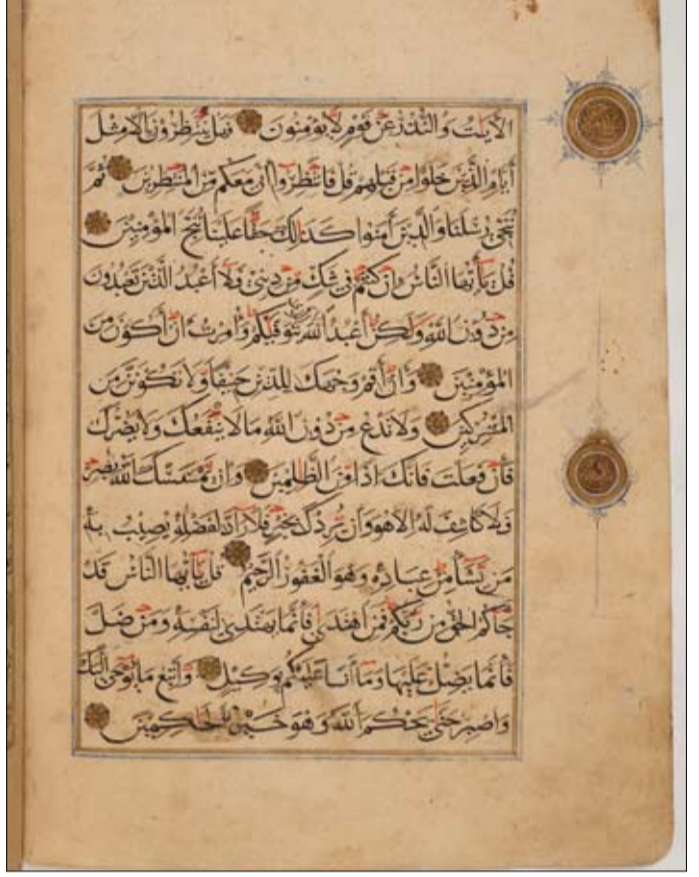 الايت والنذر عن قوم لا يومنون فهل ينتظرون الا مثل
أيام الذين خلوا من قبلهم قل فانتظروا انى معكم من المنتظرين ثم
ننجى رسلنا والذين آمنوا كذلك حقا علينا ننج المؤمنين
قل يأيها الناس ان كنتم فى شك من دينى فلا أعبد الذين تعبدون
من دون الله ولكن أعبد الله الذى يتوفيكم وامرت ان أكون من
المؤمنين وان أقم وجهك للدين حنيفا ولا تكونن من
المشركين ولا تدع من دون الله ما لا ينفعك ولا يضرك
فان فعلت فانك اذا من الظلمين وان يمسسك الله بضر
فلا كاشف له الا هو وان يردك بخير فلا راد لفضله يصيب به
من يشا من عباده وهو الغفور الرحيم قل يأيها الناس قد
جاكم الحق من ربكم فمن اهتدى فانما يهتدى لنفسه ومن ضل
فانما يضل عليها وما انا عليكم بوكيل واتبع ما يوحى اليك
واصبر حتى يحكم الله وهو خير الحكمين